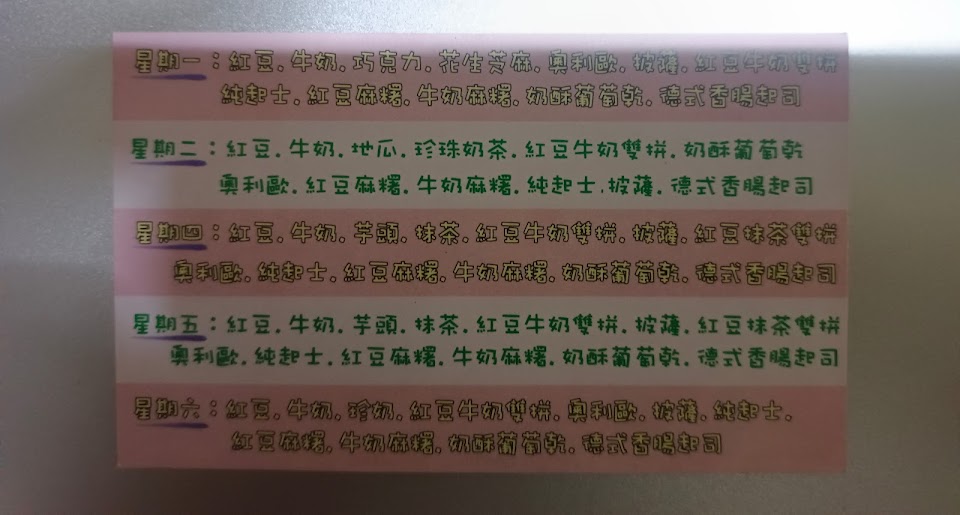 星期一：紅豆.牛奶.巧克力.花生芝麻.奧利歐.披薩.紅豆牛奶雙拼
純起士.紅豆麻糬.牛奶麻糬.奶酥葡萄乾.德式香腸起司
星期二：紅豆.牛奶.地瓜.珍珠奶茶.紅豆牛奶雙拼.奶酥葡萄乾
奧利歐.紅豆麻糬.牛奶麻糬.純起士.披薩.德式香腸起司
星期四：紅豆.牛奶.芋頭.抹茶.紅豆牛奶雙拼.披薩.紅豆抹茶雙拼
奧利歐.純起士.紅豆麻糬.牛奶麻糬.奶酥葡萄乾.德式香腸起司
星期五：紅豆.牛奶.芋頭.抹茶.紅豆牛奶雙拼.披薩.紅豆抹茶雙拼
奧利歐.純起士.紅豆麻糬.牛奶麻糬.奶酥葡萄乾.德式香腸起司
星期六：紅豆.牛奶.珍奶.紅豆牛奶雙拼.奧利歐.披薩.純起士.
紅豆麻糬.牛奶麻糬.奶酥葡萄乾.德式香腸起司